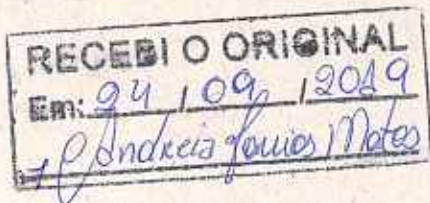 RECEBI O ORIGINAL
Em: 24 / 09 / 2019
Andreia Matos